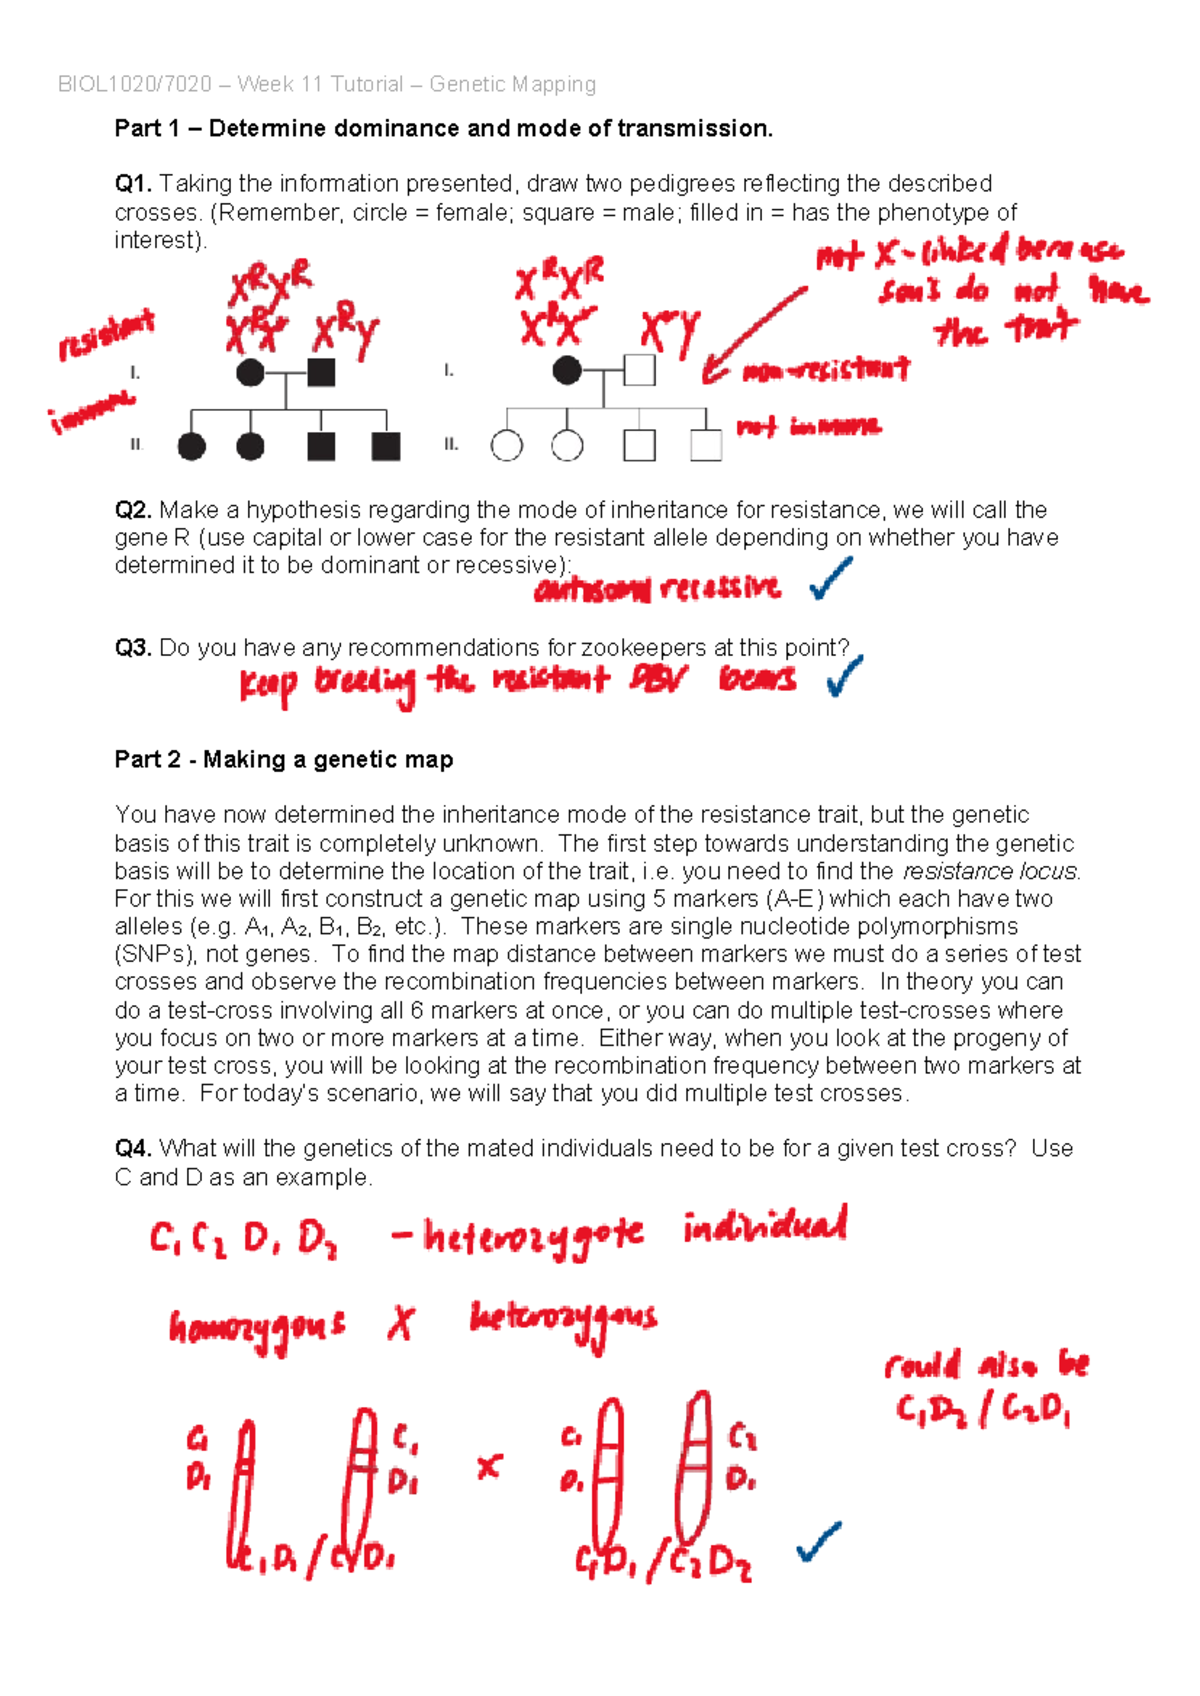 BIOL1020/7020 – Week 11 Tutorial – Genetic Mapping
Part 1 – Determine dominance and mode of transmission.
Q1. Taking the information presented, draw two pedigrees reflecting the described
crosses. (Remember, circle = female; square = male; filled in = has the phenotype of
interest).
not X-linked because
sons do not have
the trait
XᴿXᴿ
XᴿXʳ XᴿY
XᴿXᴿ
XᴿXʳ XʳY
resistant
I.
I.
non-resistant
immune
II.
II.
not immune
Q2. Make a hypothesis regarding the mode of inheritance for resistance, we will call the
gene R (use capital or lower case for the resistant allele depending on whether you have
determined it to be dominant or recessive):
autosomal recessive
Q3. Do you have any recommendations for zookeepers at this point?
keep breeding the resistant DBV bears
Part 2 - Making a genetic map
You have now determined the inheritance mode of the resistance trait, but the genetic
basis of this trait is completely unknown. The first step towards understanding the genetic
basis will be to determine the location of the trait, i.e. you need to find the resistance locus.
For this we will first construct a genetic map using 5 markers (A-E) which each have two
alleles (e.g. A₁, A₂, B₁, B₂, etc.). These markers are single nucleotide polymorphisms
(SNPs), not genes. To find the map distance between markers we must do a series of test
crosses and observe the recombination frequencies between markers. In theory you can
do a test-cross involving all 6 markers at once, or you can do multiple test-crosses where
you focus on two or more markers at a time. Either way, when you look at the progeny of
your test cross, you will be looking at the recombination frequency between two markers at
a time. For today's scenario, we will say that you did multiple test crosses.
Q4. What will the genetics of the mated individuals need to be for a given test cross? Use
C and D as an example.
C₁ C₂ D₁ D₂ – heterozygote individual
homozygous X heterozygous
could also be
C₁D₂ / C₂D₁
C₁ C₁ x C₁ C₂
D₁ D₁ D₁ D₁
C₁D₁ / C₁D₁ C₁D₁ / C₂D₂